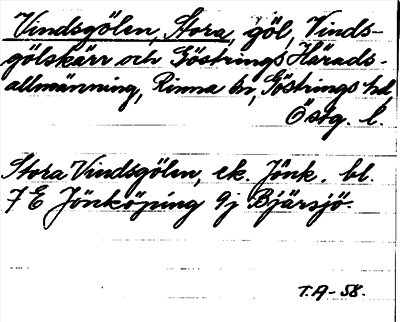 Vindsgölen, Stora, göl, Vinds-
gölskärr och Göstrings Härads-
allmänning, Rinna sn, Göstrings hd
Östg. l.
Stora Vindsgölen, ek. Jönk. bl.
7 E Jönköping 9j Bjärsjö.
T.A-58.